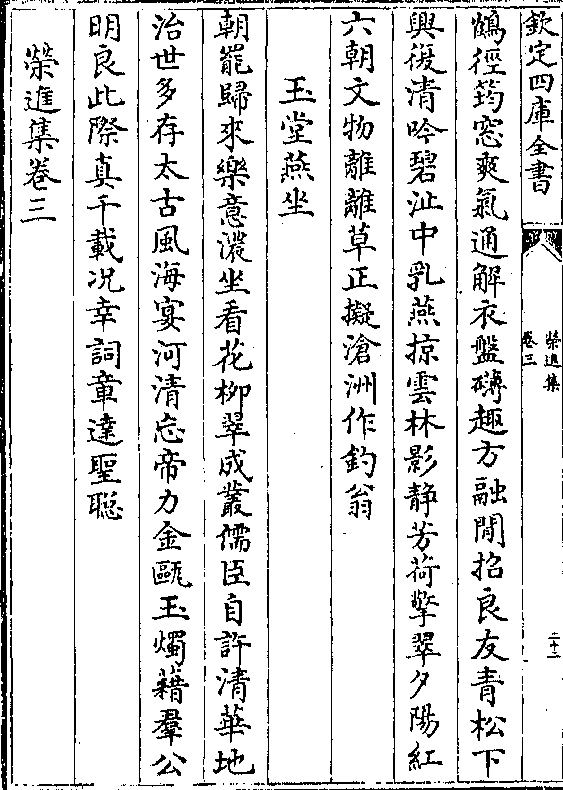 欽定四庫全書
榮進集
卷三
二十二
鶴徑筠窓爽氣通解衣盤礴趣方融閒招良友青松下
興後清吟碧沚中乳燕掠雲林影靜芳荷擎翠夕陽紅
六朝文物離離草正擬滄洲作釣翁
玉堂燕坐
朝罷歸來樂意濃坐看花柳翠成叢儒臣自許清華地
治世多存太古風海宴河清忘帝力金甌玉燭藉羣公
明良此際真千載况幸詞章達聖聡
榮進集卷三